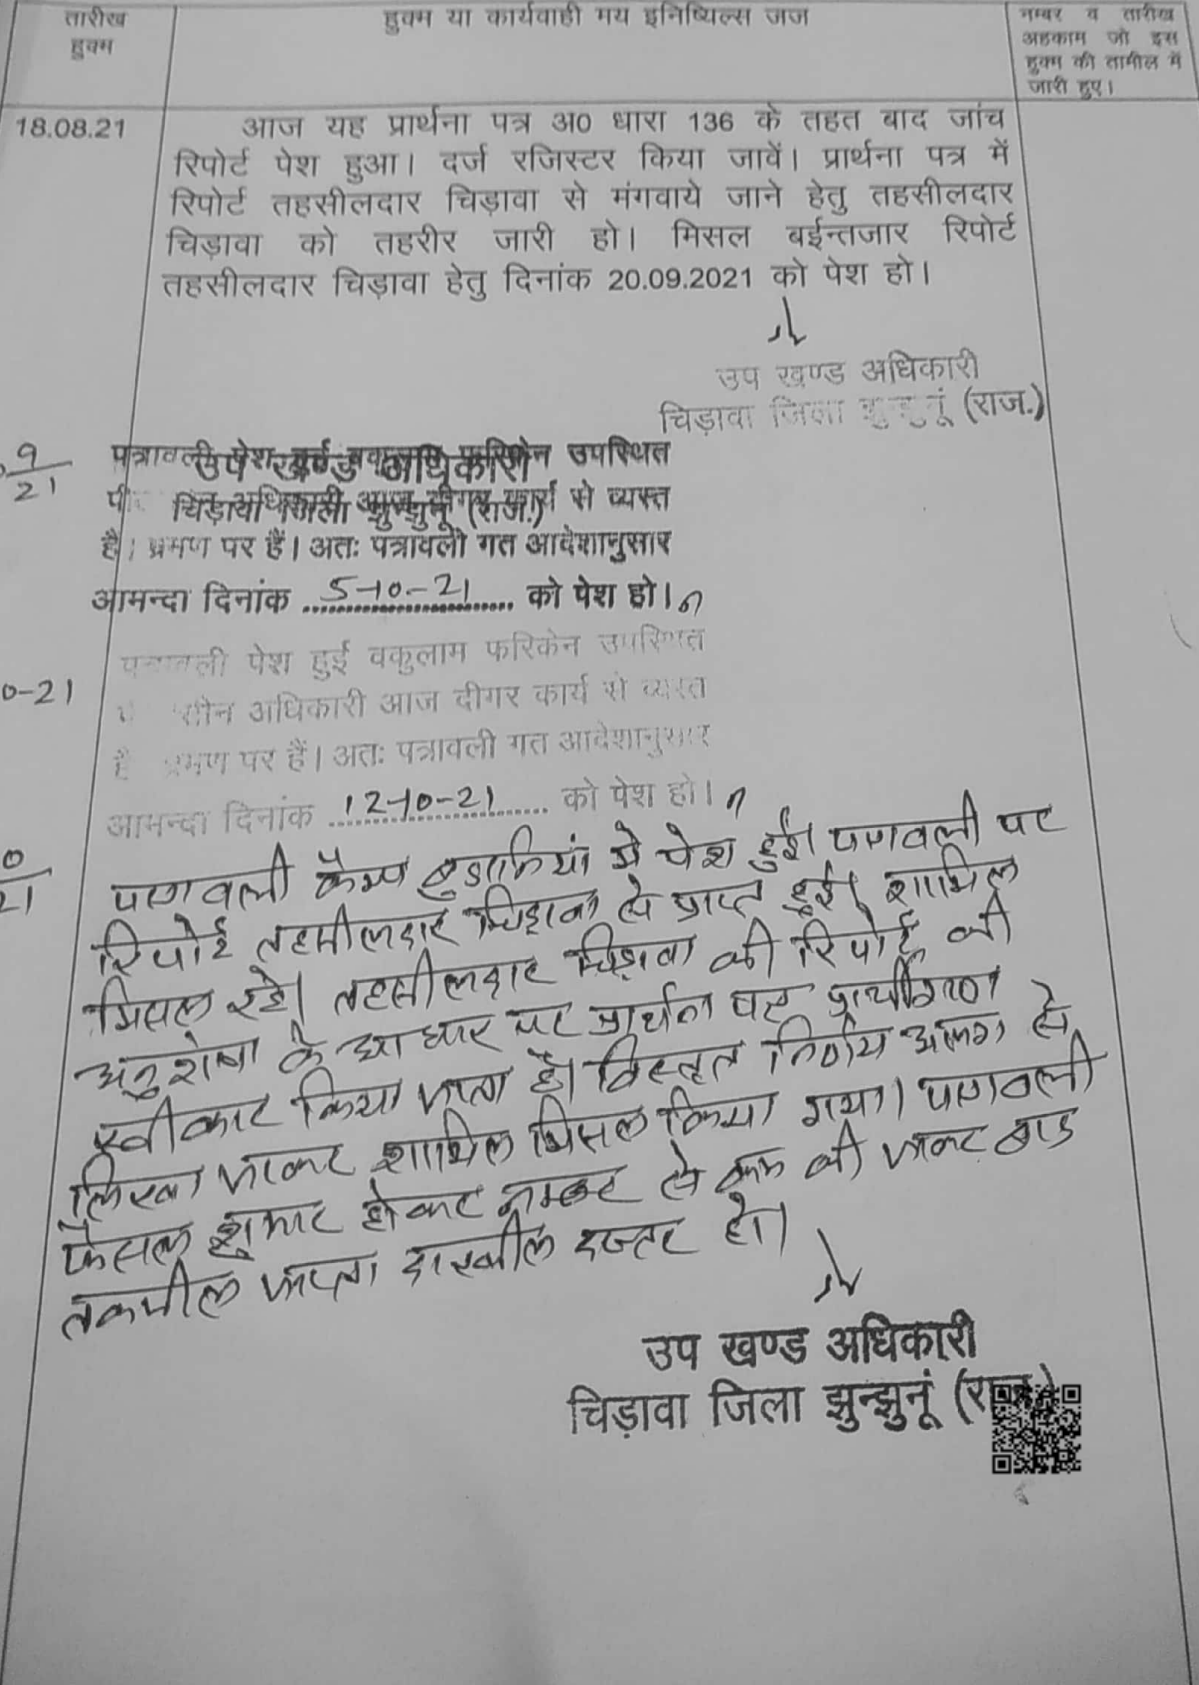 तारीख
हुक्म
हुक्म या कार्यवाही मय इनिष्यिल्स जज
नम्बर व तारीख
अहकाम जो इस
हुक्म की तामील में
जारी हुए।
18.08.21
आज यह प्रार्थना पत्र अ0 धारा 136 के तहत बाद जांच
रिपोर्ट पेश हुआ। दर्ज रजिस्टर किया जावें। प्रार्थना पत्र में
रिपोर्ट तहसीलदार चिड़ावा से मंगवाये जाने हेतु तहसीलदार
चिड़ावा को तहरीर जारी हो। मिसल बईन्तजार रिपोर्ट
तहसीलदार चिड़ावा हेतु दिनांक 20.09.2021 को पेश हो।
उप खण्ड अधिकारी
चिड़ावा जिला झुन्झुनूं (राज.)
9
21
पत्रावली पेश हुई वकुलाम फरिकेन उपस्थित
उप खण्ड अधिकारी
अधिकारी आज दीगर कार्य से व्यस्त
चिड़ावा जिला झुन्झुनूं (राज.)
है। भ्रमण पर हैं। अतः पत्रावली गत आदेशानुसार
आमन्दा दिनांक 5-10-21 को पेश हो।
पत्रावली पेश हुई वकुलाम फरिकेन उपस्थित
0-21
सीन अधिकारी आज दीगर कार्य से व्यस्त
है भ्रमण पर हैं। अतः पत्रावली गत आदेशानुसार
आमन्दा दिनांक 12-10-21 को पेश हो।
0
21
पत्रावली कैम्प में पेश हुई। पत्रावली पर
रिपोर्ट तहसीलदार चिड़ावा से प्राप्त हुई। शामिल
मिसल रहे। तहसीलदार चिड़ावा की रिपोर्ट की
अनुशंषा के आधार पर प्रार्थना पत्र प्रार्थीगण
स्वीकार किया जाता है। विस्तृत निर्णय अलग से
लिखा जाकर शामिल मिसल किया गया। पत्रावली
फैसल शुमार होकर नम्बर से कम की जाकर बाद
तकमील जाप्ता दाखील दफ्तर हो।
उप खण्ड अधिकारी
चिड़ावा जिला झुन्झुनूं (राज.)